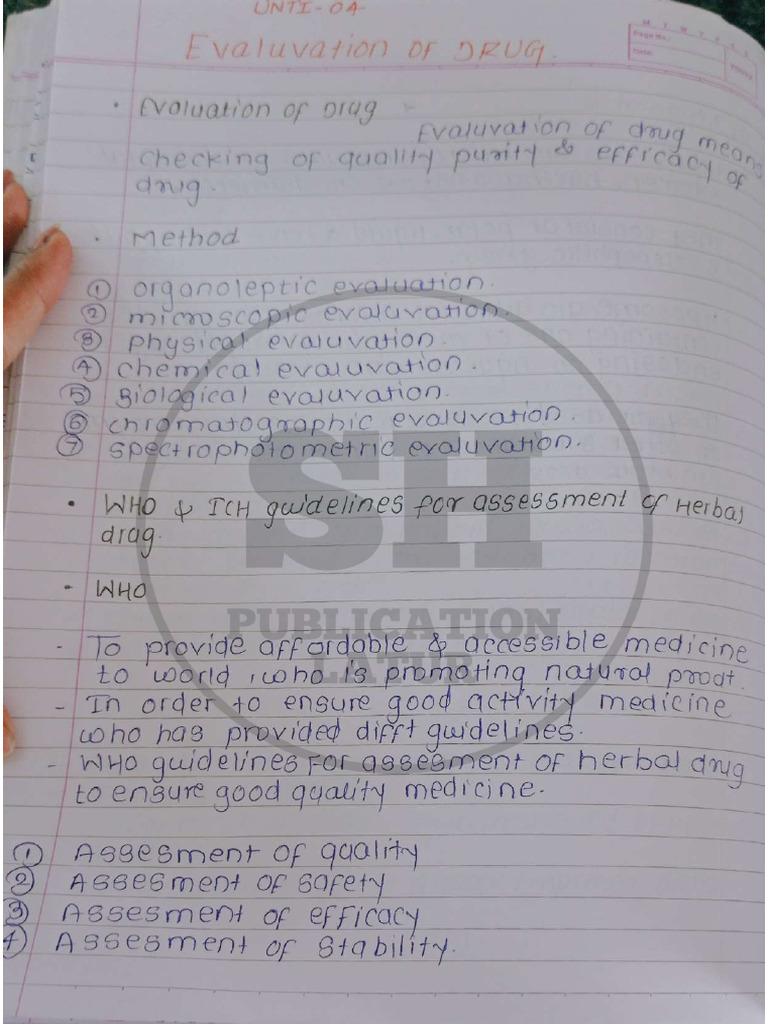 UNTI-04
Evaluvation OF DRUG.
Page No.:
Date:
YOUVA
• Evaluation of Drug :-
Evaluvation of drug means
checking of quality purity & efficacy of
drug.
• Method
① organoleptic evaluation.
② microscopic evaluvation.
③ physical evaluvation.
④ chemical evaluvation.
⑤ Biological evaluvation.
⑥ chromatographic evaluvation.
⑦ spectrophotometric evaluvation.
• WHO & ICH guidelines for assessment of Herbal
drag.
• WHO
- To provide affordable & accessible medicine
to world, who is promoting natural prodt.
- In order to ensure good activity medicine
who has provided difft guidelines.
- WHO guidelines For assesment of herbal drug
to ensure good quality medicine.
① Assesment of quality
② Assesment of safety
③ Assesment of efficacy
④ Assesment of stability.
SH
PUBLICATION
LATUR